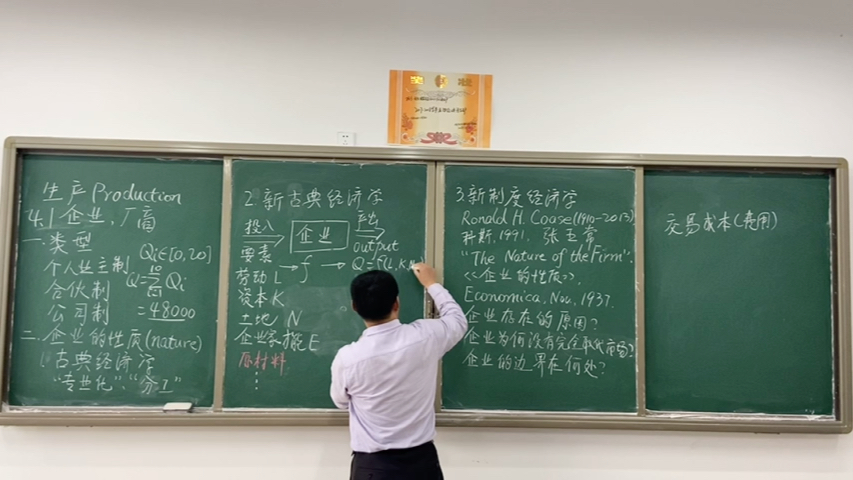 奖状
生产 Production
4.1 企业,厂商
一.类型
Qi∈[0,20]
个人业主制
Q=Σ Qi
合伙制
公司制 =48000
二.企业的性质(nature)
1.古典经济学
"专业化""分工"
2.新古典经济学
投入 企业 产出
要素 output
→f→ Q=f(L,K,N
劳动 L
资本 K
土地 N
企业家才能 E
原材料
⋮
3.新制度经济学
Ronald H. Coase(1910-2013)
科斯,1991, 张五常
"The Nature of the Firm".
<<企业的性质>>,
Economica, Nov, 1937.
企业存在的原因?
企业为何没有完全取代市场?
企业的边界在何处?
交易成本(费用)